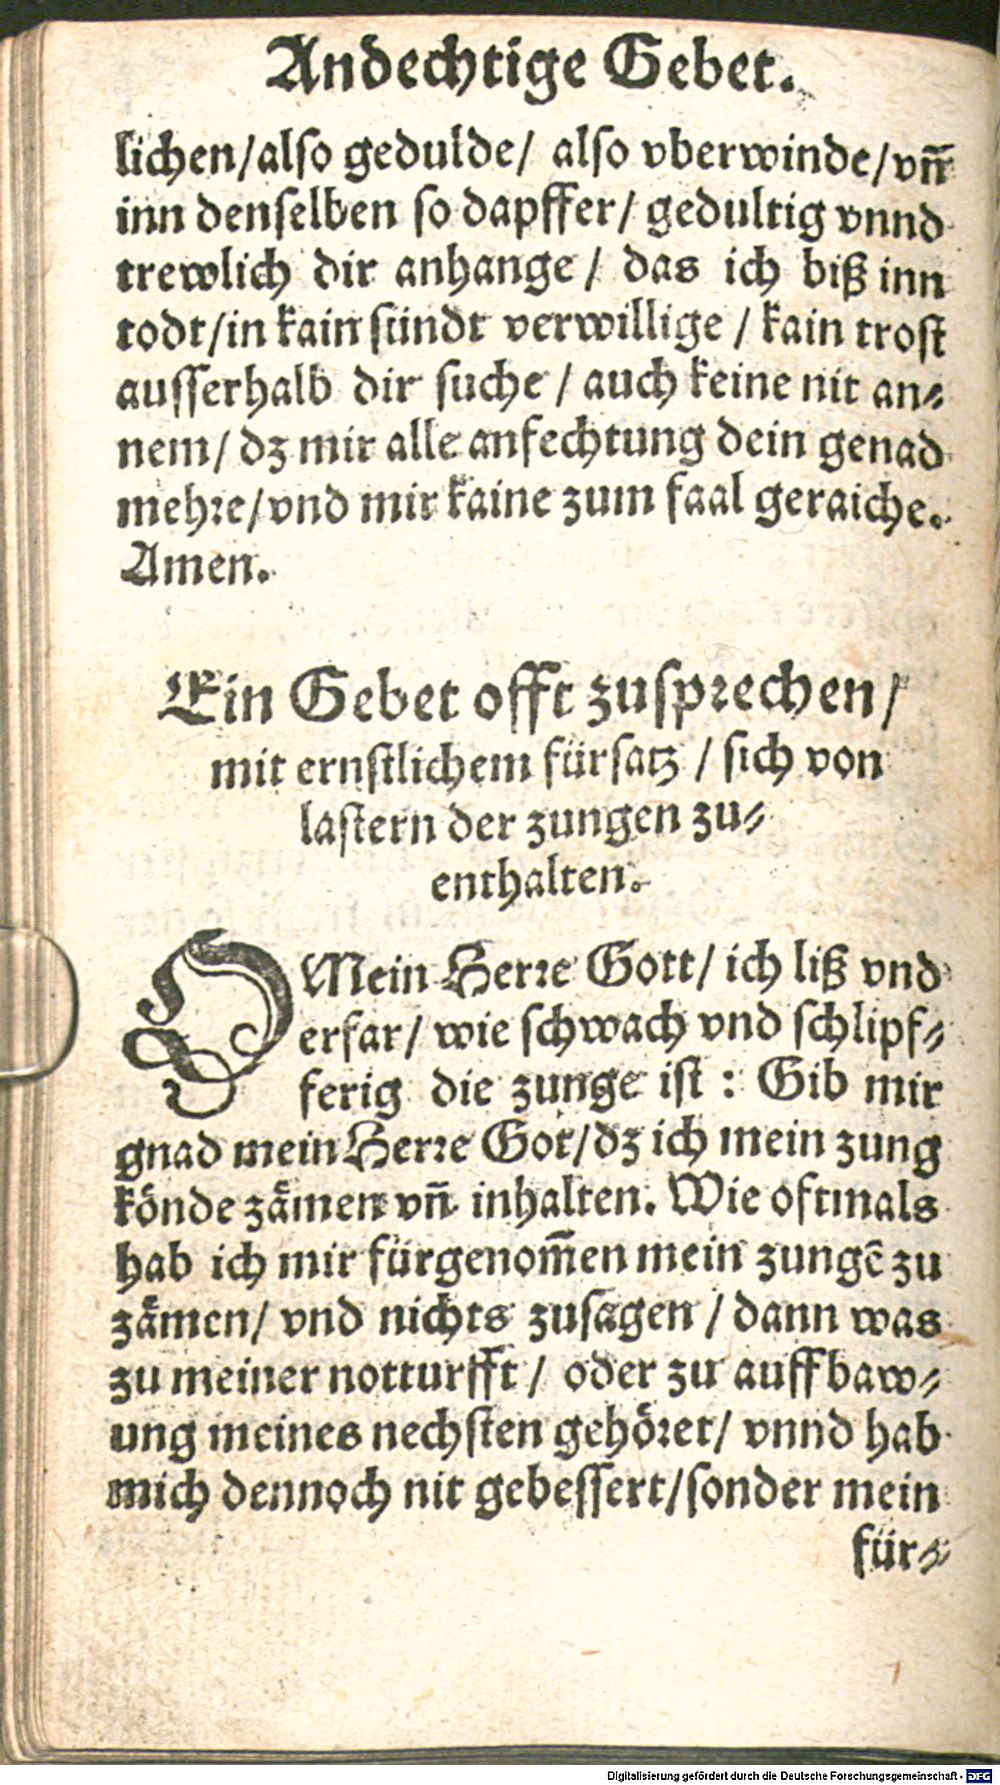 Andechtige Gebet.
lichen/also gedulde/ also vberwinde/vn̄
inn denselben so dapffer/ gedultig vnnd
trewlich dir anhange/ das ich biß inn
todt/in kain sündt verwillige / kain trost
ausserhalb dir suche / auch keine nit an⸗
nem/ dz mir alle anfechtung dein genad
mehre/vnd mir kaine zum faal geraiche.
Amen.
Ein Gebet offt zusprechen/
mit ernstlichem fürsatz / sich von
lastern der zungen zu⸗
enthalten.
O Mein Herre Gott/ ich liß vnd
erfar/ wie schwach vnd schlipf⸗
ferig die zunge ist : Gib mir
gnad mein Herre Got/dz ich mein zung
könde zämen vn̄ inhalten. Wie oftmals
hab ich mir fürgenom̄en mein zungē zu
zämen/ vnd nichts zusagen / dann was
zu meiner notturfft / oder zu auffbaw⸗
ung meines nechsten gehöret/ vnnd hab
mich dennoch nit gebessert/sonder mein
für⸗
Digitalisierung gefördert durch die Deutsche Forschungsgemeinschaft - DFG